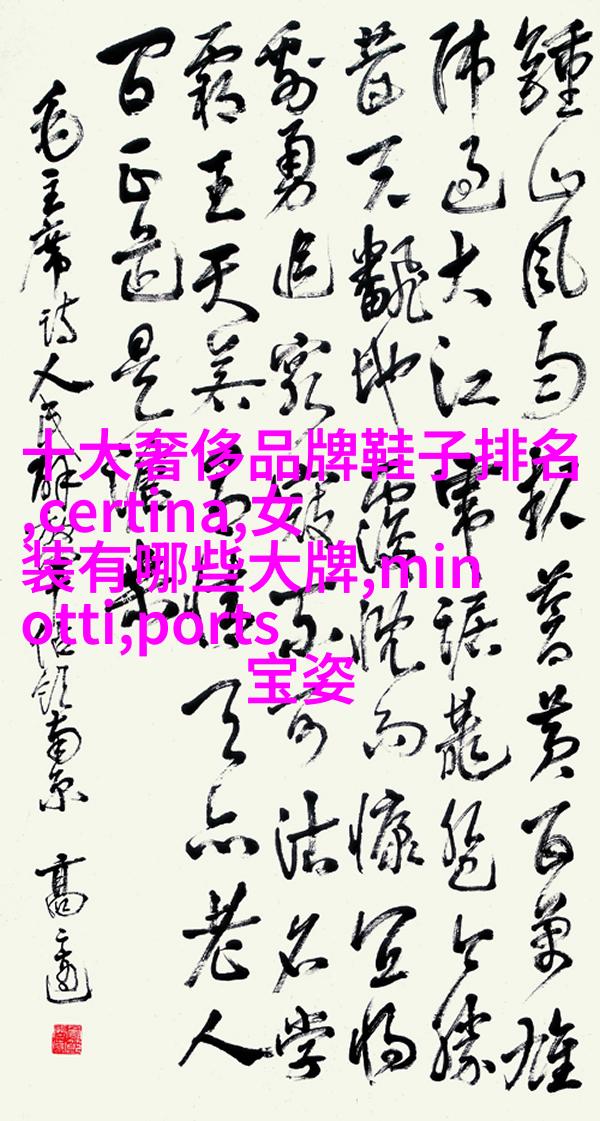 鍾山风雨起蒼黄百萬雄
师过大江虎踞龍盘今勝
昔天翻地覆慨而慷宜将
剩勇追穷寇不可沽名学
霸王天若有情天亦老人
间正道是滄桑
毛主席诗人民解放军占领南京 高
十大奢侈品牌鞋子排名
,certina,女
装有哪些大牌,min
otti,ports
宝姿